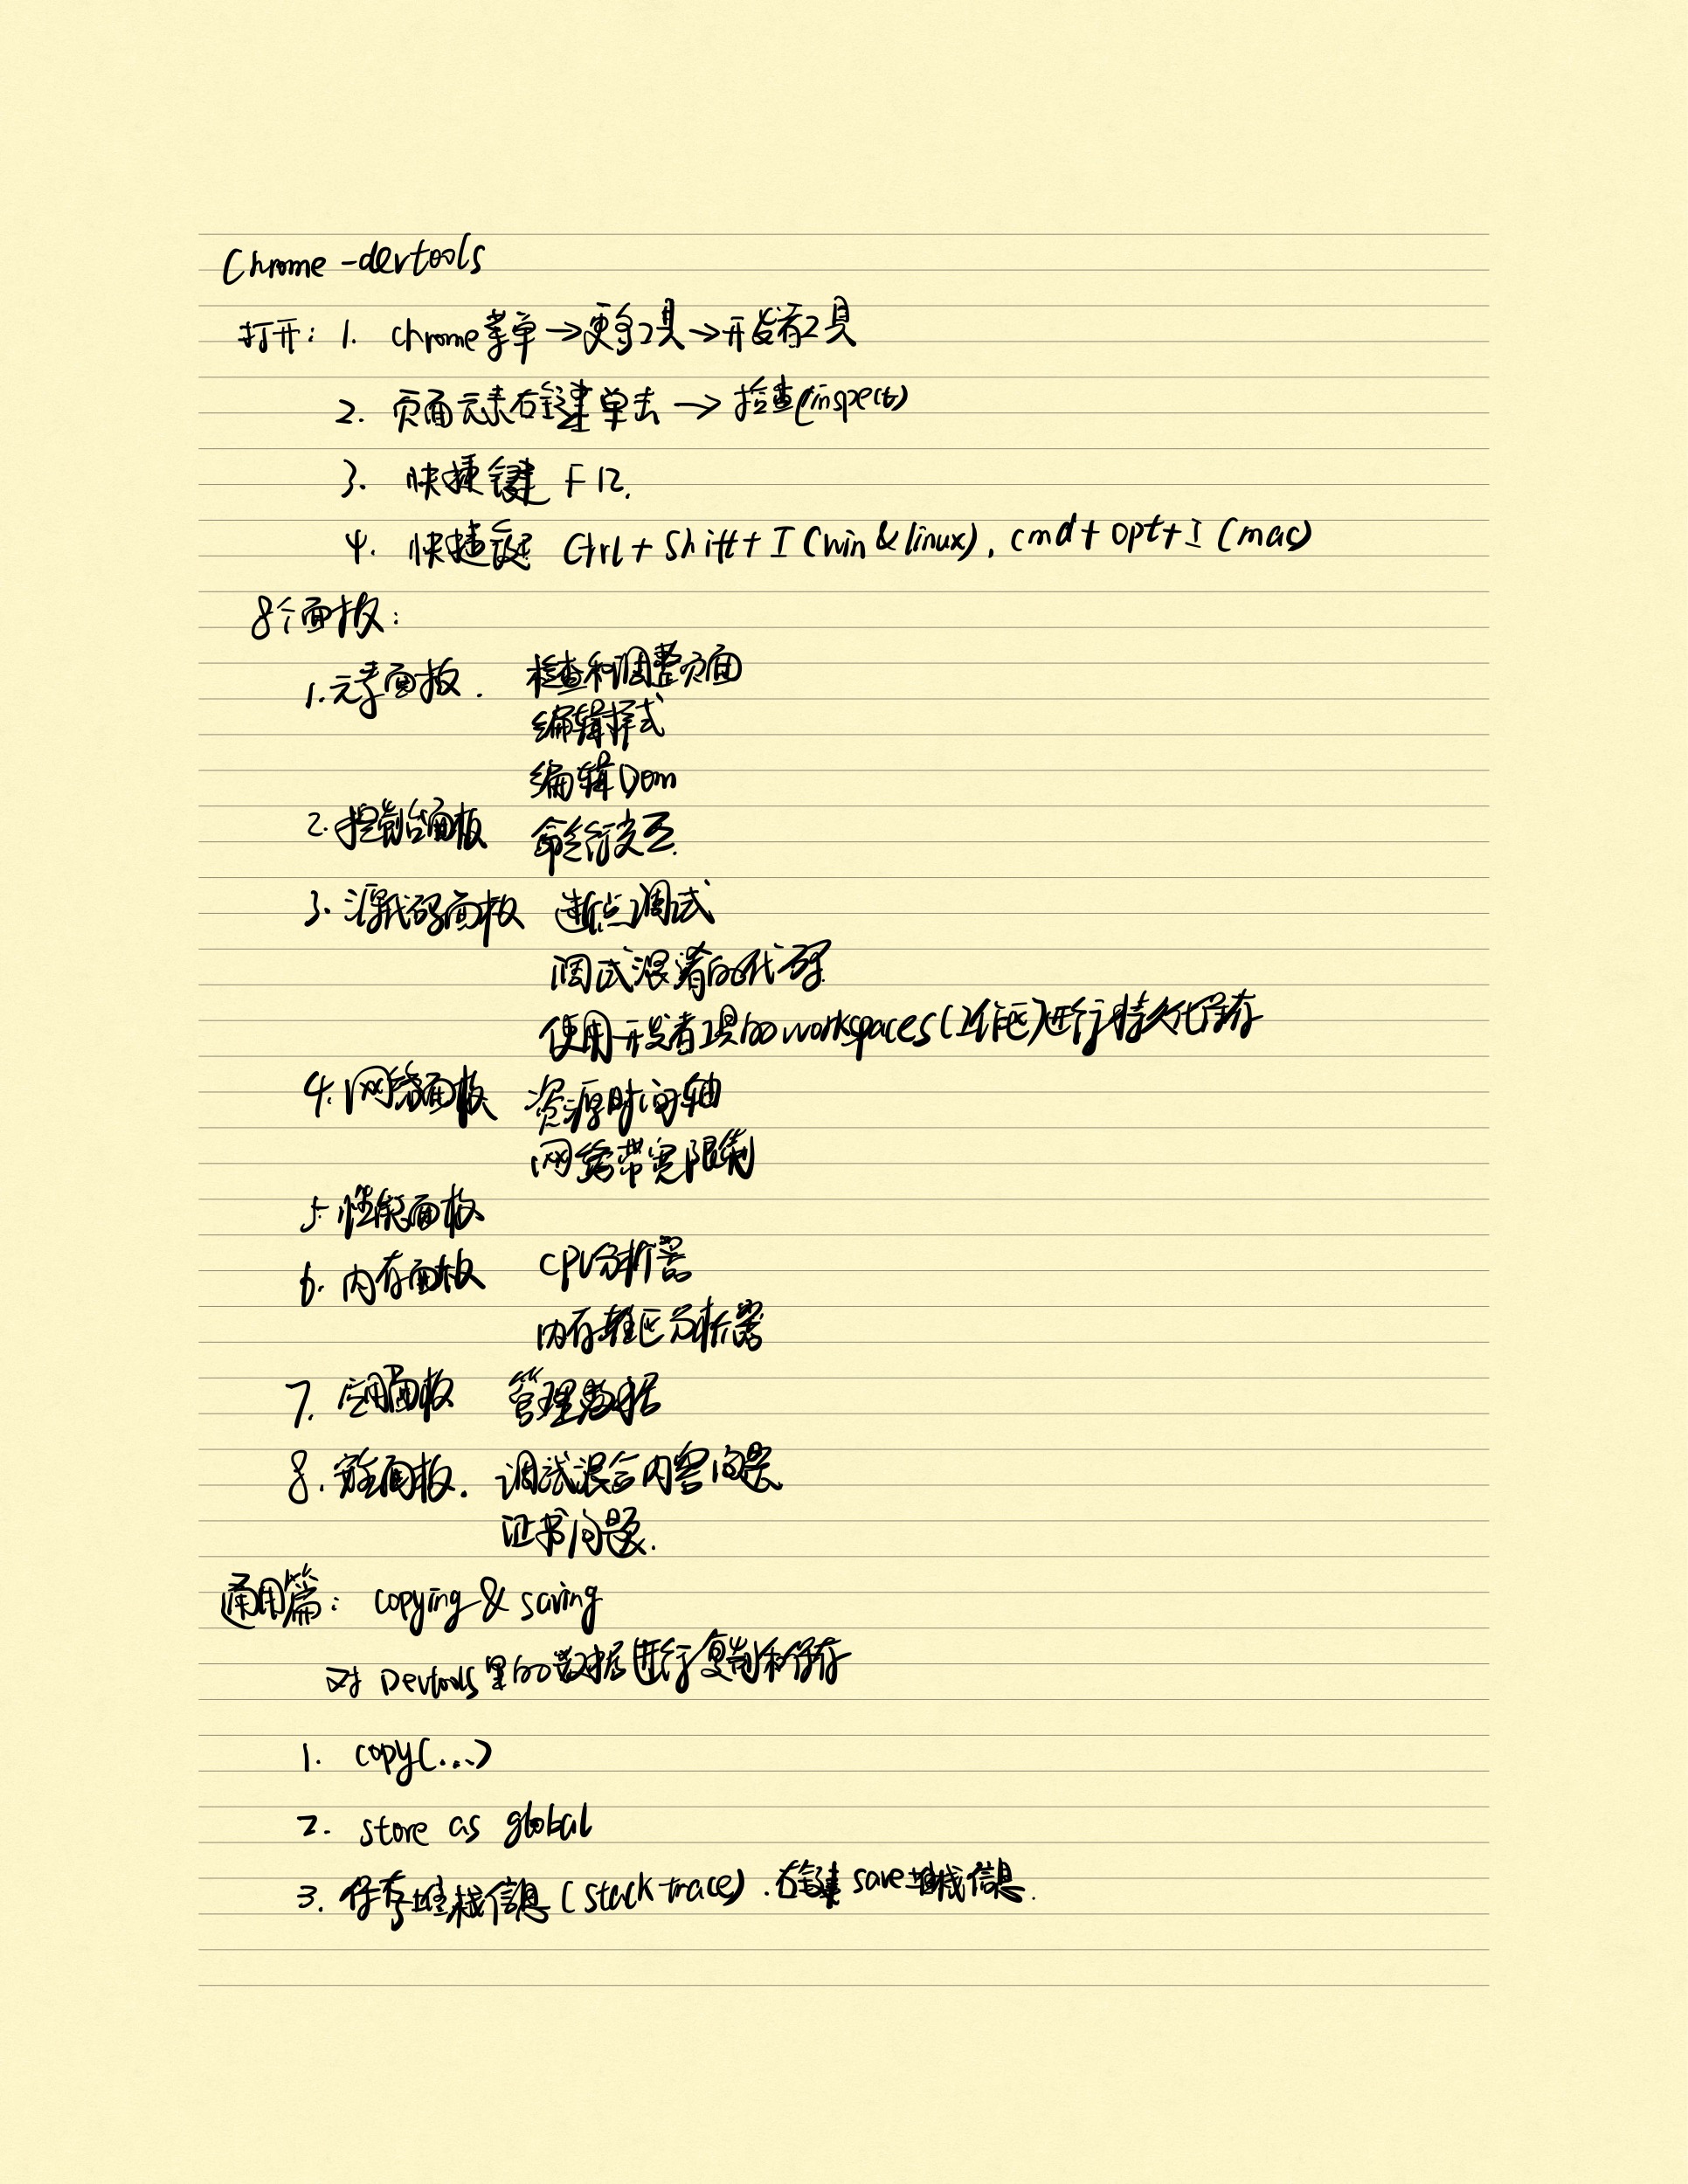 Chrome-devtools
打开: 1. chrome菜单→更多工具→开发者工具
2. 页面元素右键单击→检查(inspect)
3. 快捷键 F12.
4. 快捷键 Ctrl+Shift+I (win&linux), cmd+opt+I (mac)
8个面板:
1.元素面板. 检查和调整页面
编辑样式
编辑Dom
2.控制台面板 命令行交互.
3.源代码面板 断点调试
调试混淆的代码
使用开发者工具的workspaces(工作区)进行持久化保存
4.网络面板 资源时间轴
网络带宽限制
5.性能面板
6.内存面板 CPU分析器
内存堆区分析器
7.应用面板 管理数据
8.安全面板. 调试混合内容问题
证书问题.
通用篇: copying & saving
对 Devtools里的数据进行复制和保存
1. copy(...)
2. store as global
3. 保存堆栈信息(stack trace).右键save堆栈信息.